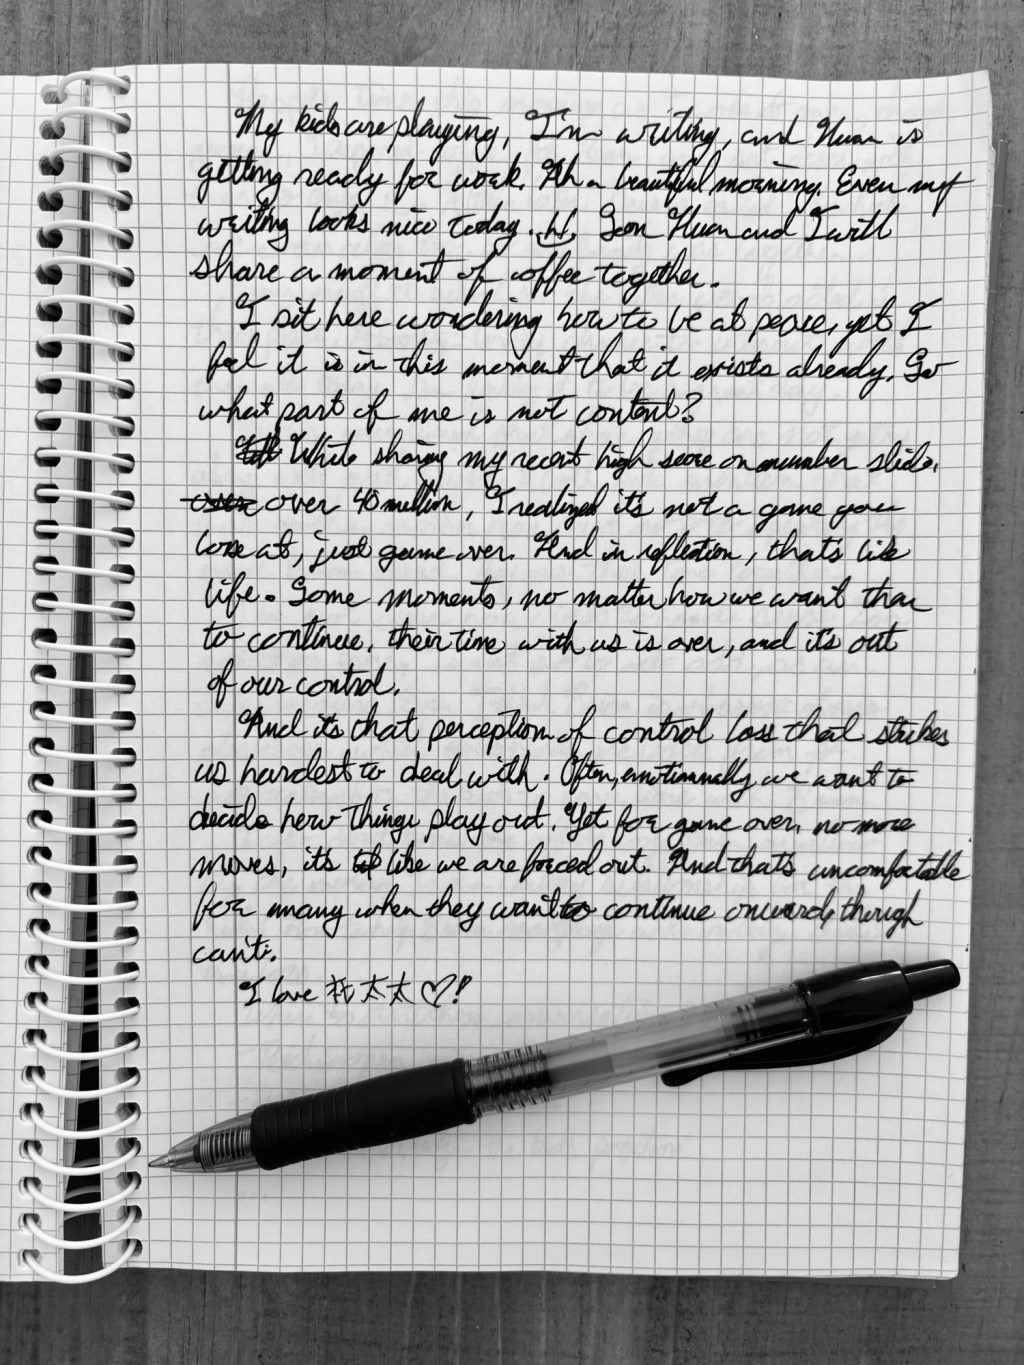 My kids are playing, I'm writing, and Huan is
getting ready for work. Ah a beautiful morning. Even my
writing looks nice today. Soon Huan and I will
share a moment of coffee together.
I sit here wondering how to be at peace, yet I
feel it is in this moment that it exists already. So
what part of me is not content?
While sharing my recent high score on number slide,
over 40 million, I realized it's not a game you
lose at, just game over. And in reflection, that's like
life. Some moments, no matter how we want them
to continue, their time with us is over, and it's out
of our control.
And it's that perception of control loss that strikes
us hardest to deal with. Often, emotionally we want to
decide how things play out. Yet for game over, no more
moves, it's like we are forced out. And that's uncomfortable
for many when they want to continue onward, though
can't.
I love 我太太 ♡!